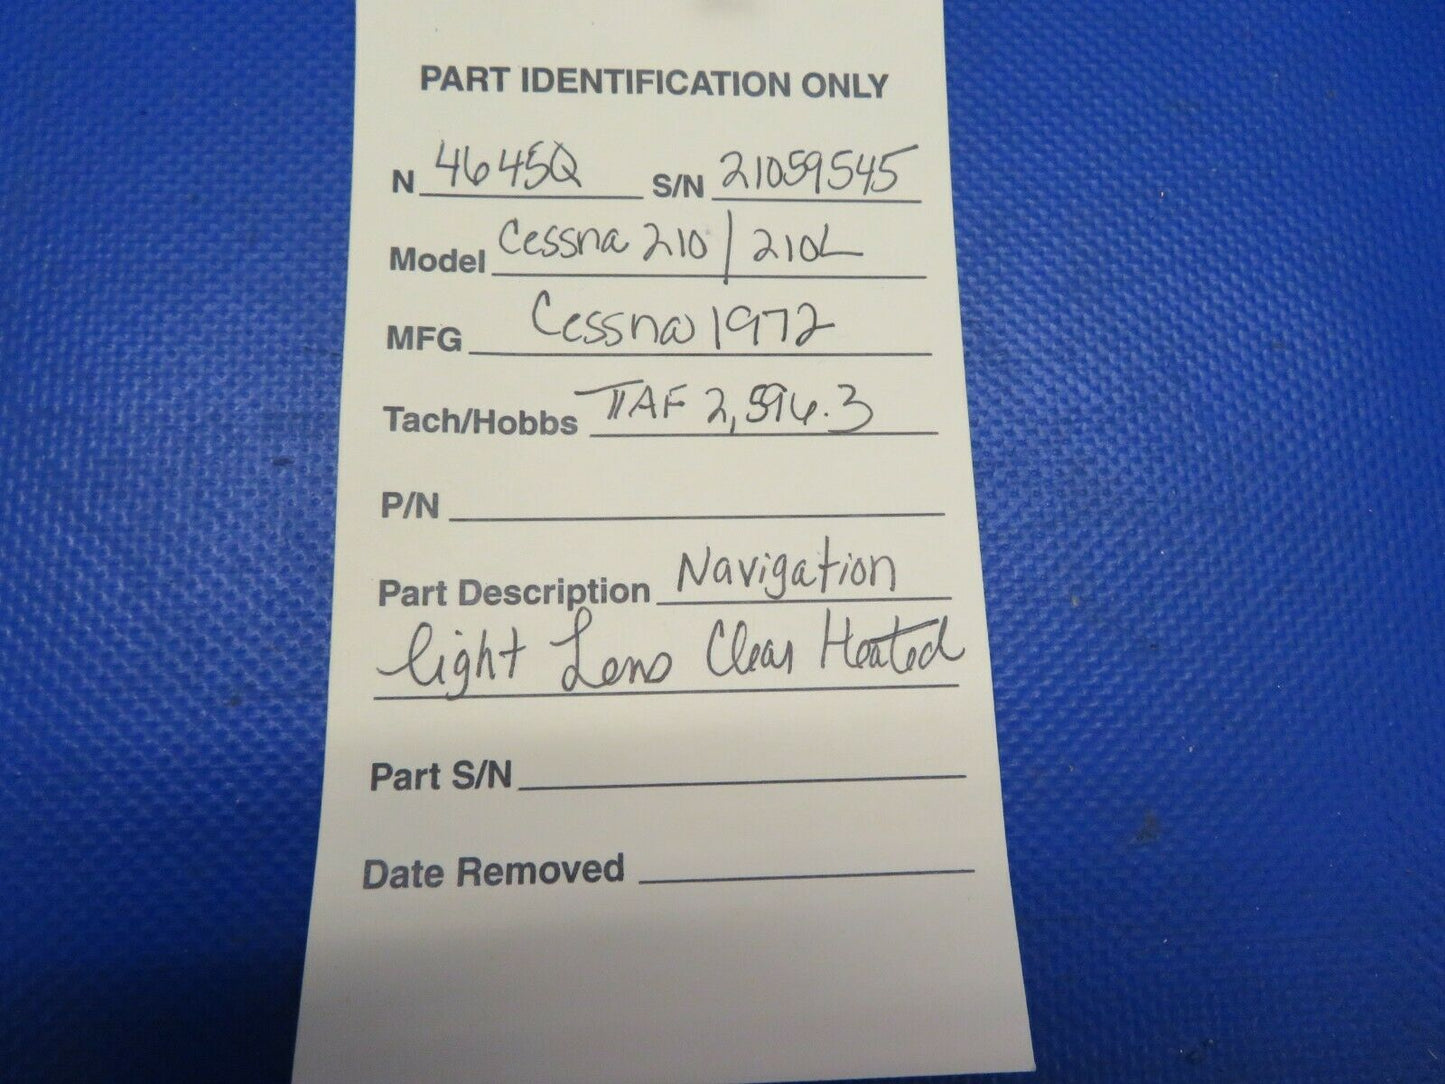 PART IDENTIFICATION ONLY
N 4645Q S/N 21059545
Model Cessna 210/210L
MFG Cessna 1972
Tach/Hobbs TTAF 2,596.3
P/N
Part Description Navigation
light Lens Clear Heated
Part S/N
Date Removed